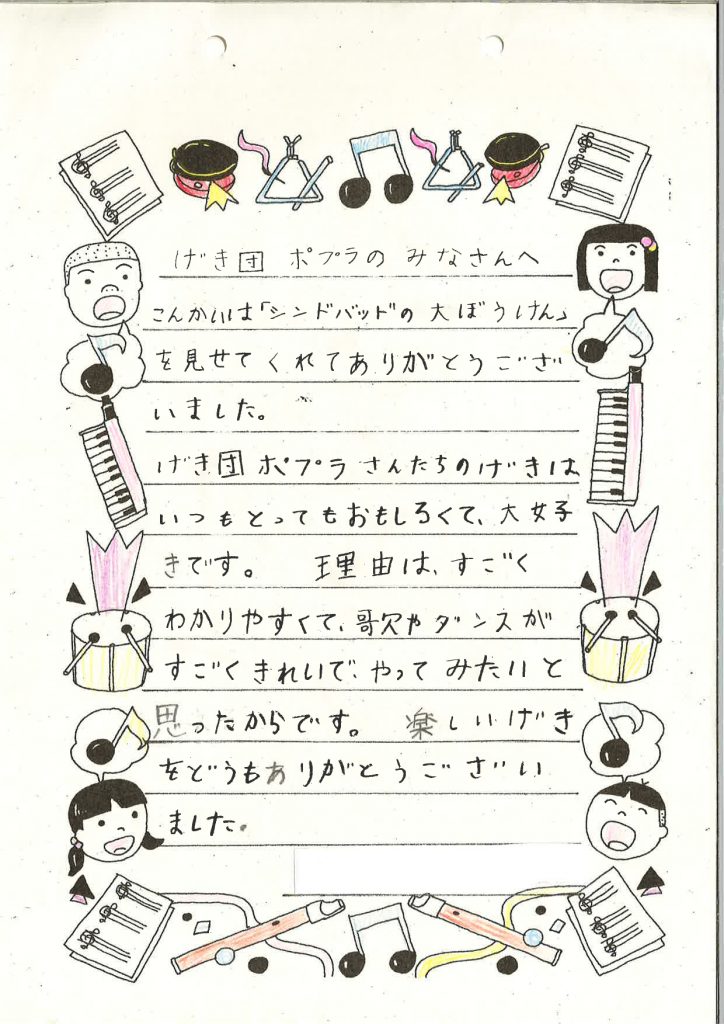 げき団 ポプラの みなさんへ
こんかいは「シンドバッドの 大ぼうけん」
を見せてくれてありがとうござ
いました。
げき団 ポプラ さんたちのげきは
いつもとってもおもしろくて、大好
きです。 理由は、すごく
わかりやすくて、歌やダンスが
すごくきれいで、やってみたいと
思ったからです。 楽しいげき
をどうもありがとうござい
ました。